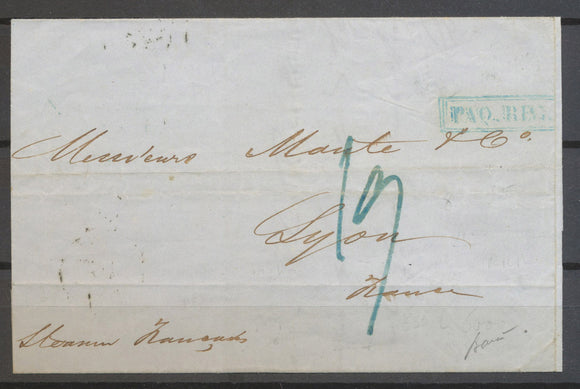 PAQ. REG.
Messieurs Mante & Co.
13
Lyon
France
Steamer Français